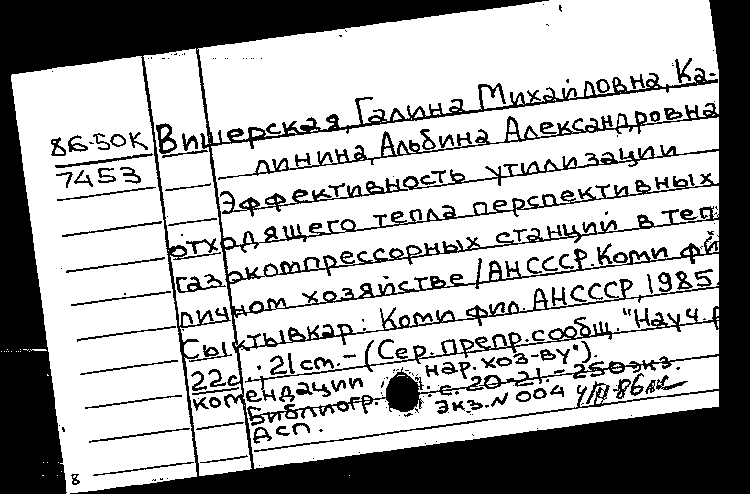 86-50К
7453
Вишерская, Галина Михайловна, Ка-
линина, Альбина Александровна
Эффективность утилизации
отходящего тепла перспективных
газокомпрессорных станций в теп
личном хозяйстве / АНСССР. Коми ф
Сыктывкар: Коми фил. АНСССР, 1985.
22с.; 21 см. - (Сер. препр. сообщ. "Науч. р
комендации нар. хоз-ву").
Библиогр. с. 20-21. - 250 экз.
Экз. N 004
Асп.
8